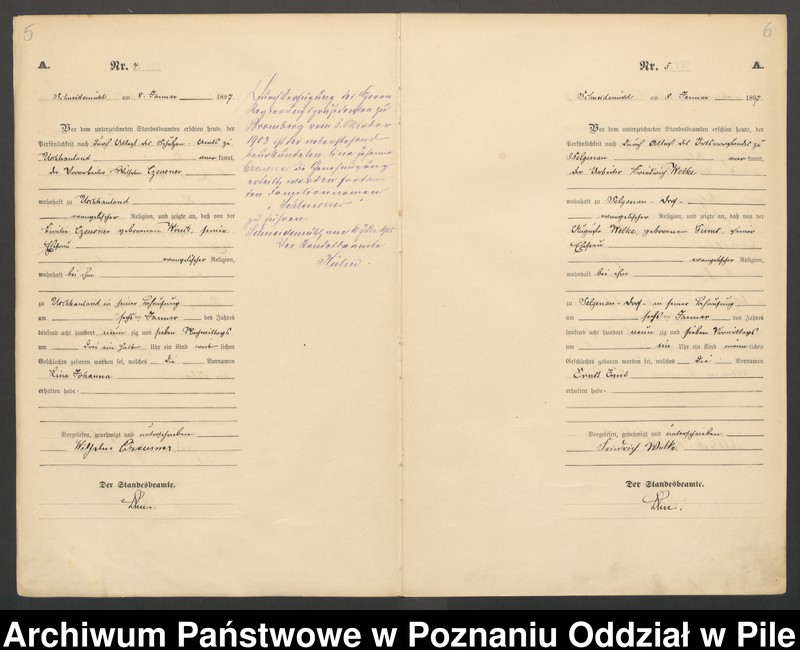 5
A.
Nr. 4.
Schneidemühl am 8. Januar 1897
Vor dem unterzeichneten Standesbeamten erschien heute, der
Persönlichkeit nach durch Attest des Schulzen-Amts zu
Uschhauland anerkannt,
der Vorarbeiter Wilhelm
wohnhaft zu Uschhauland
evangelischer Religion, und zeigte an, daß von der
Emilie geborenen seiner
Ehefrau
evangelischer Religion,
wohnhaft bei ihm
zu Uschhauland in seiner Behausung
am sechsten Januar des Jahres
tausend acht hundert neunzig und sieben Nachmittags
um drei ein halb Uhr ein Kind weiblichen
Geschlechts geboren worden sei, welches die Vornamen
Lina Johanna
erhalten habe.
Vorgelesen, genehmigt und unterschrieben
Wilhelm
Der Standesbeamte.
Durch Verfügung des Herrn
Regierungspräsidenten zu
Bromberg vom 5. Oktober
ist der nebenstehend
beurkundeten Lina Johanna
die Genehmigung
erteilt worden fortan
den Familiennamen
zu führen.
Schneidemühl, am
Der Standesbeamte
6
Nr. 5.
A.
Schneidemühl am 8. Januar 1897
Vor dem unterzeichneten Standesbeamten erschien heute, der
Persönlichkeit nach durch Attest des Ortsvorstandes zu
Selgenau anerkannt,
der Arbeiter Friedrich Welke
wohnhaft zu Selgenau-Dorf
evangelischer Religion, und zeigte an, daß von der
Auguste Welke, geborenen seiner
Ehefrau
evangelischer Religion,
wohnhaft bei ihm
zu Selgenau-Dorf in seiner Behausung
am sechsten Januar des Jahres
tausend acht hundert neunzig und sieben Vormittags
um ein Uhr ein Kind männlichen
Geschlechts geboren worden sei, welches die Vornamen
Ernst Emil
erhalten habe.
Vorgelesen, genehmigt und unterschrieben
Friedrich Welke.
Der Standesbeamte.
Archiwum Państwowe w Poznaniu Oddział w Pile